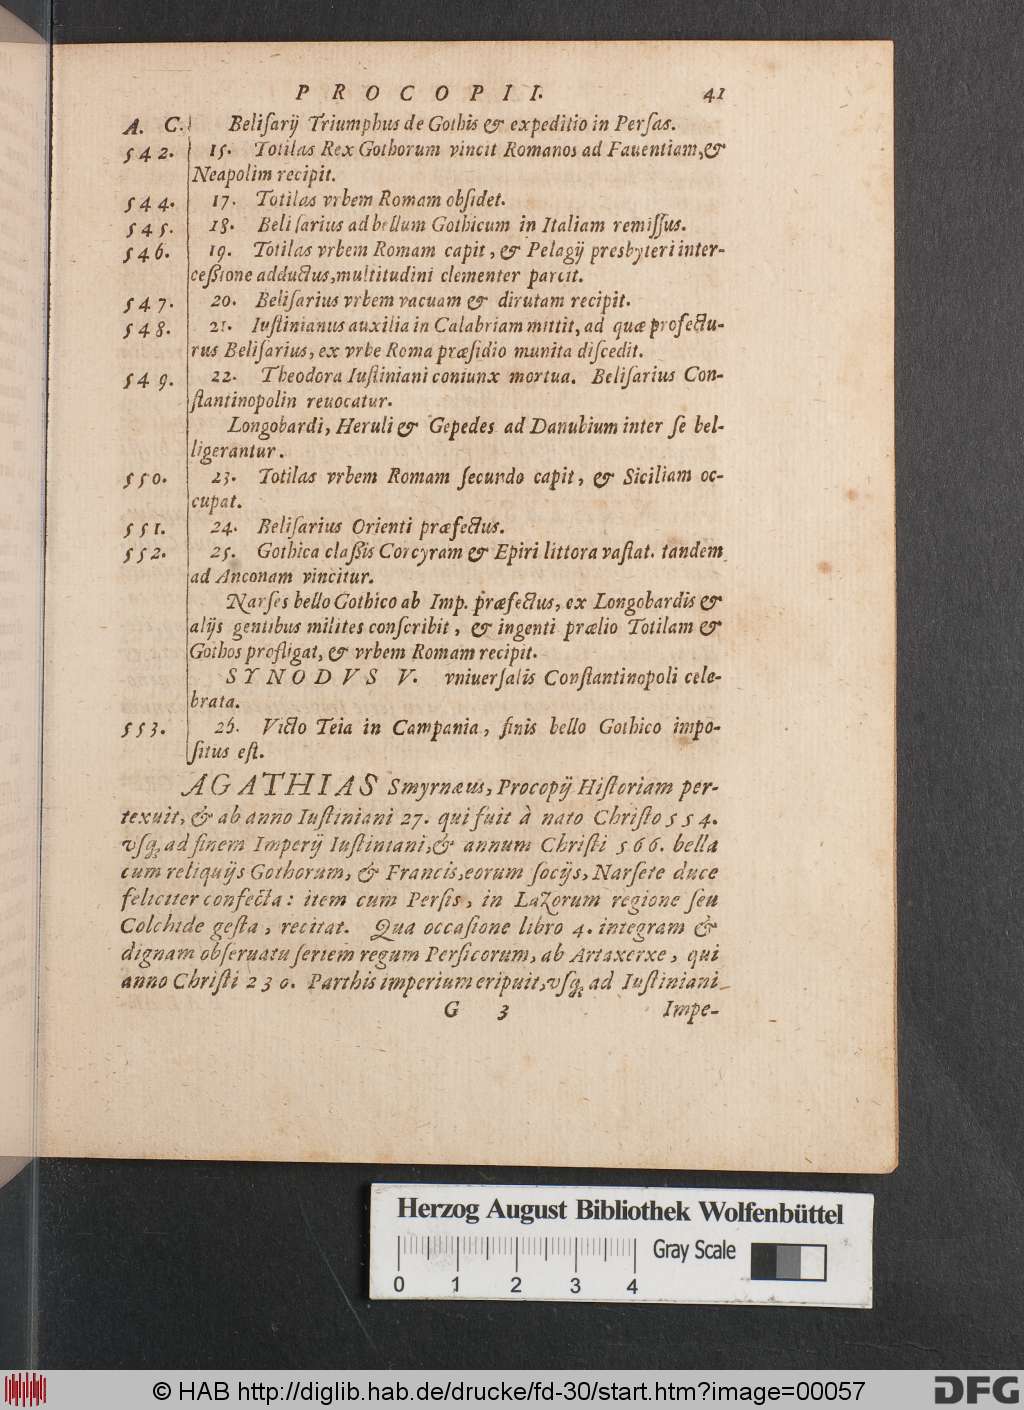 PROCOPII. 41
A. C. Beliſarij Triumphus de Gothis & expeditio in Perſas.
542. 15. Totilas Rex Gothorum vincit Romanos ad Fauentiam, &
Neapolim recipit.
544. 17. Totilas vrbem Romam obſidet.
545. 18. Beliſarius ad bellum Gothicum in Italiam remiſſus.
546. 19. Totilas vrbem Romam capit, & Pelagij presbyteri inter-
ceßione adductus, multitudini clementer parcit.
547. 20. Beliſarius vrbem vacuam & dirutam recipit.
548. 21. Iuſtinianus auxilia in Calabriam mittit, ad quæ profectu-
rus Beliſarius, ex vrbe Roma præſidio munita diſcedit.
549. 22. Theodora Iuſtiniani coniunx mortua. Beliſarius Con-
ſtantinopolin reuocatur.
Longobardi, Heruli & Gepedes ad Danubium inter ſe bel-
ligerantur.
550. 23. Totilas vrbem Romam ſecundo capit, & Siciliam oc-
cupat.
551. 24. Beliſarius Orienti præfectus.
552. 25. Gothica claßis Corcyram & Epiri littora vaſtat. tandem
ad Anconam vincitur.
Narſes bello Gothico ab Imp. præfectus, ex Longobardis &
alijs gentibus milites conſcribit, & ingenti prælio Totilam &
Gothos profligat, & vrbem Romam recipit.
SYNODVS V. vniuerſalis Conſtantinopoli cele-
brata.
553. 26. Victo Teia in Campania, finis bello Gothico impo-
ſitus eſt.
AGATHIAS Smyrnæus, Procopij Hiſtoriam per-
texuit, & ab anno Iuſtiniani 27. qui fuit à nato Chriſto 554.
vſq; ad finem Imperij Iuſtiniani, & annum Chriſti 566. bella
cum reliquijs Gothorum, & Francis, eorum ſocijs, Narſete duce
feliciter confecta: item cum Perſis, in Lazorum regione ſeu
Colchide geſta, recitat. Qua occaſione libro 4. integram &
dignam obſeruatu ſeriem regum Perſicorum, ab Artaxerxe, qui
anno Chriſti 230. Parthis imperium eripuit, vſq; ad Iuſtiniani
G 3 Impe-
Herzog August Bibliothek Wolfenbüttel
Gray Scale
0 1 2 3 4
© HAB http://diglib.hab.de/drucke/fd-30/start.htm?image=00057
DFG